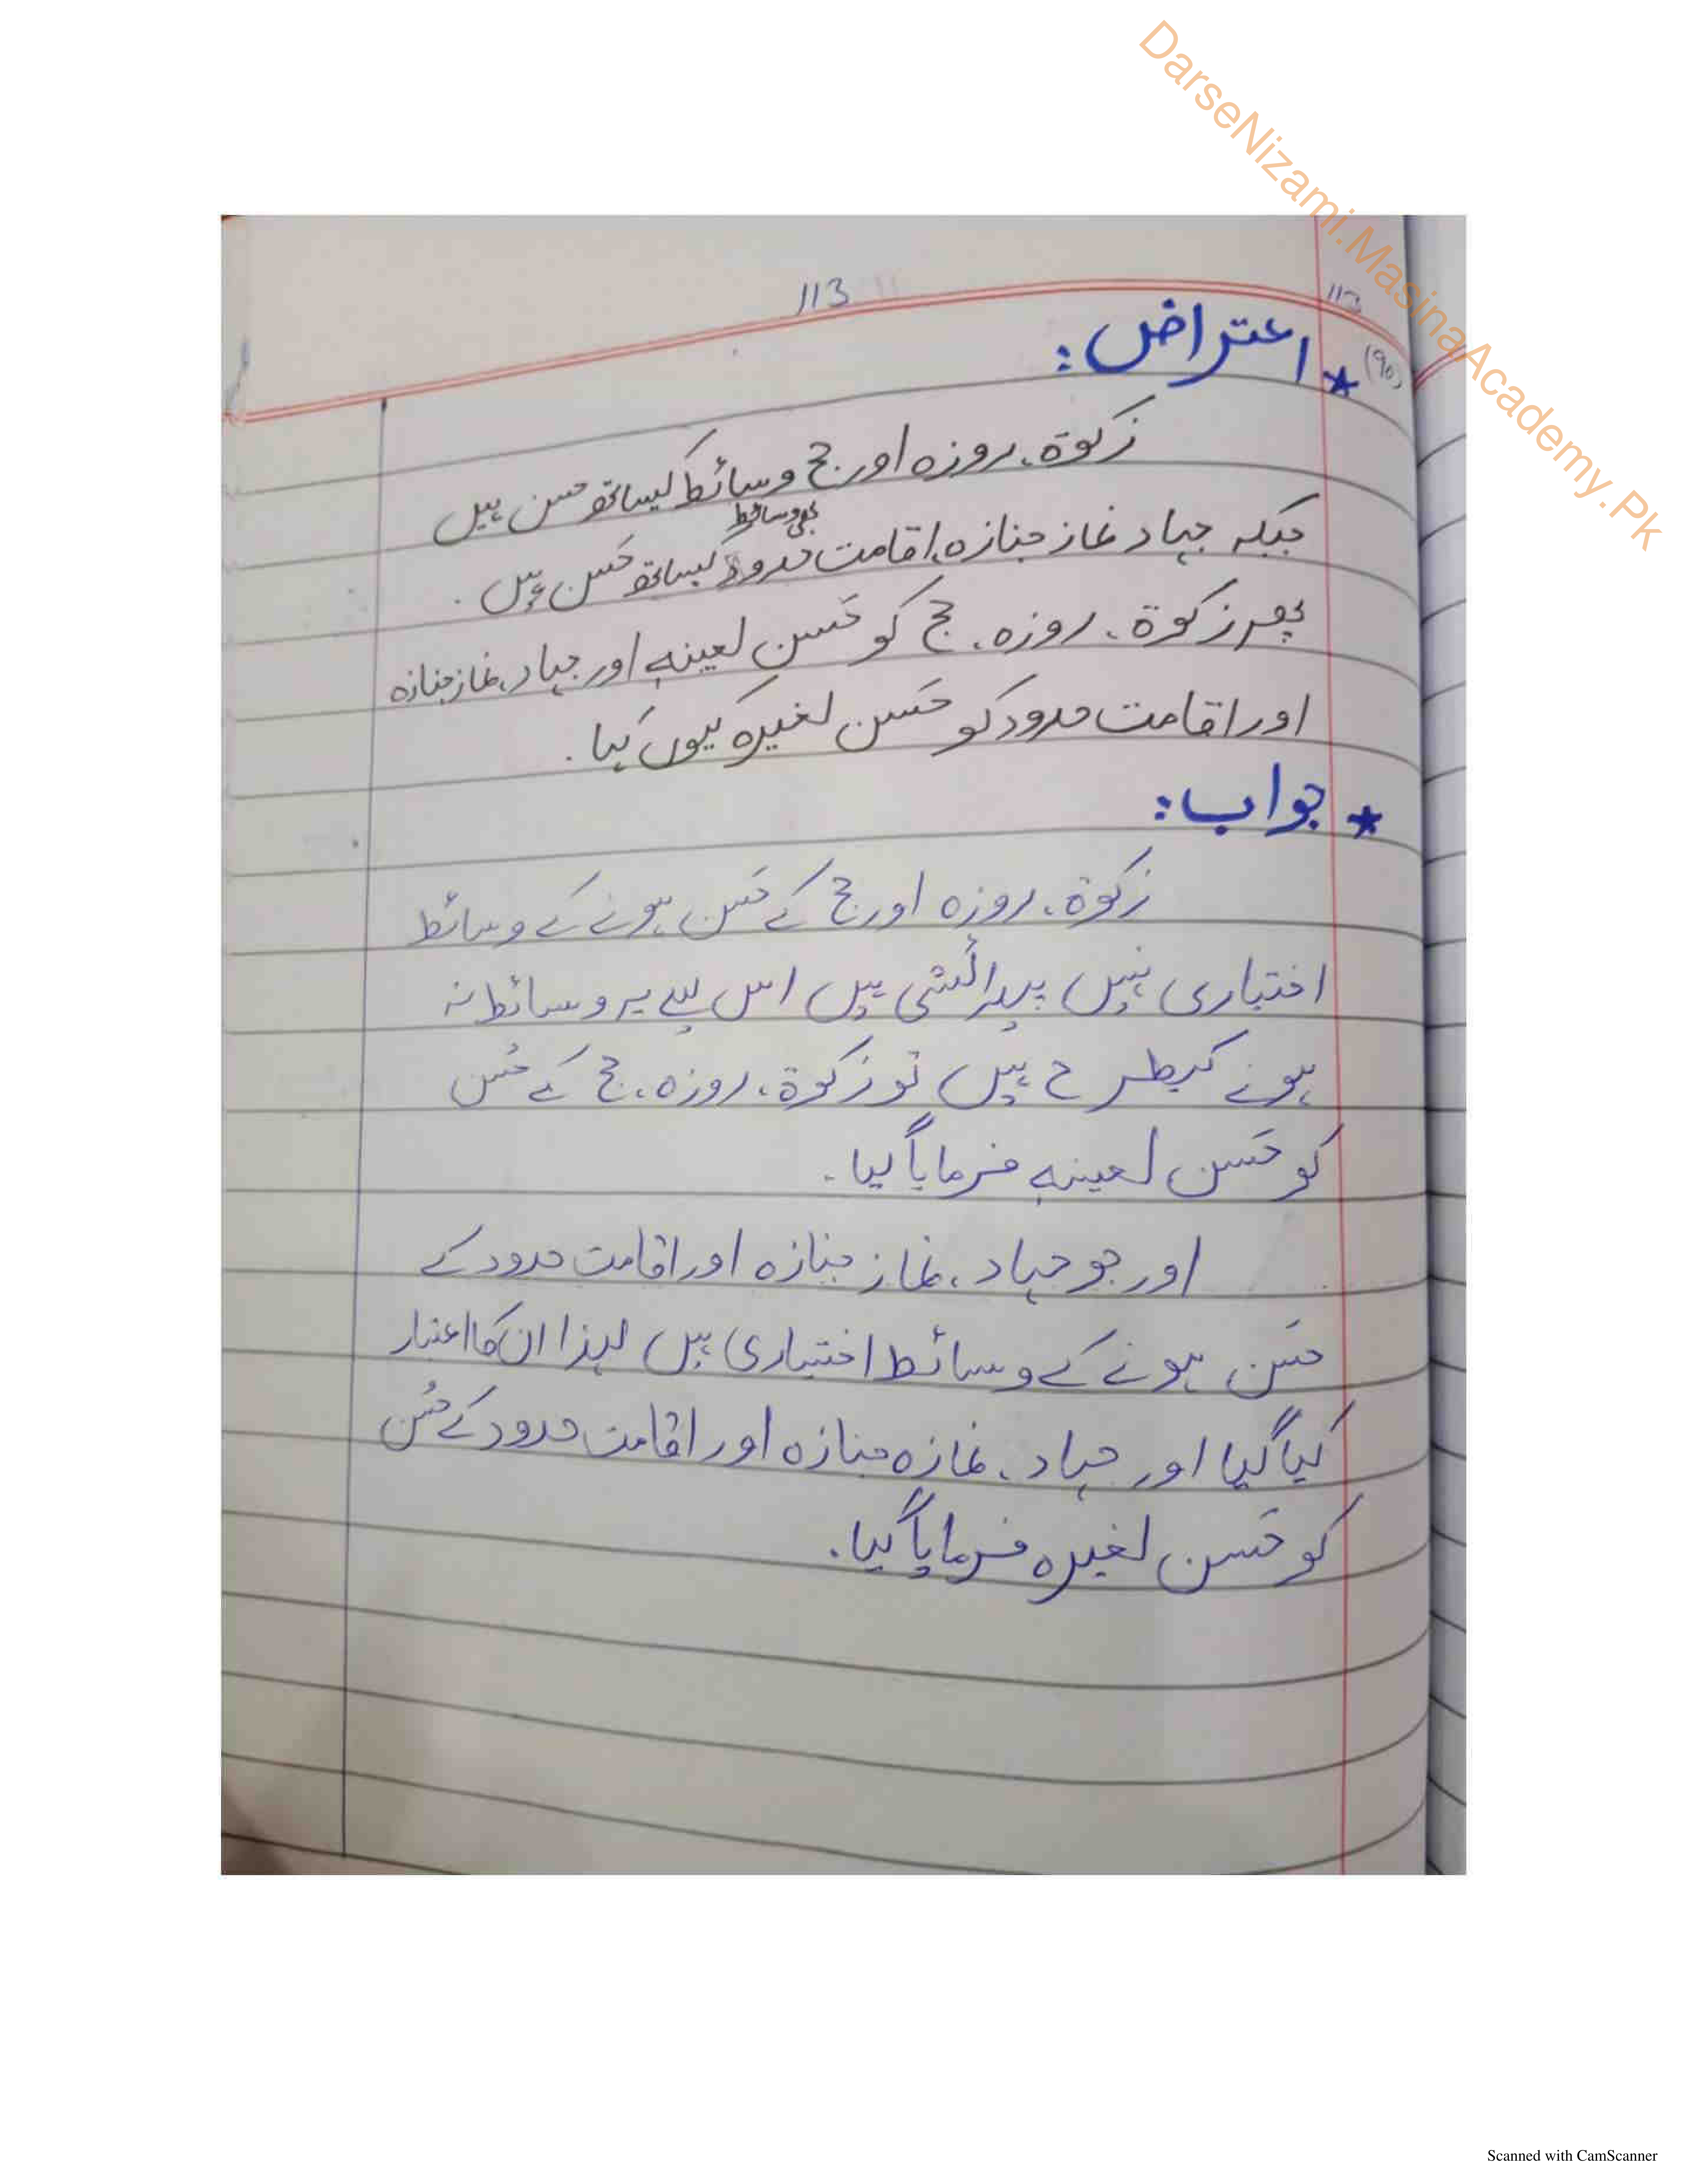 DarseNizami.MasinaAcademy.Pk
113
113
(90)
★ اعتراض:
زکوۃ، روزہ اور حج وسائط کیساتھ حسن ہیں
بھی وسائط
جبکہ جہاد نماز جنازہ، اقامت حدود کیساتھ حَسن ہیں.
پھر زکوۃ، روزہ، حج کو حَسن لعینہٖ اور جہاد، نماز جنازہ
اور اقامت حدود کو حَسن لغیرہ کیوں کہا.
★ جواب:
زکوۃ، روزہ اور حج کے حَسن ہونے کے وسائط
اختیاری نہیں پیدائشی ہیں اس لیے یہ وسائط نہ
ہونے کیطرح ہیں تو زکوۃ، روزہ، حج کے حُسن
کو حَسن لعینہٖ فرمایا گیا.
اور جو جہاد، نماز جنازہ اور اقامت حدود کے
حَسن ہونے کے وسائط اختیاری ہیں لہذا ان کا اعتبار
کیا گیا اور جہاد، نمازہ جنازہ اور اقامت حدود کے حُسن
کو حَسن لغیرہ فرمایا گیا.
Scanned with CamScanner